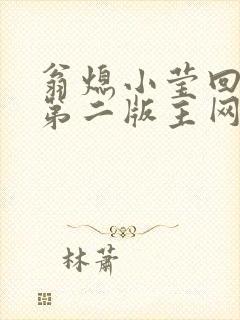 翁熄小莹回
第二版主网
林萧